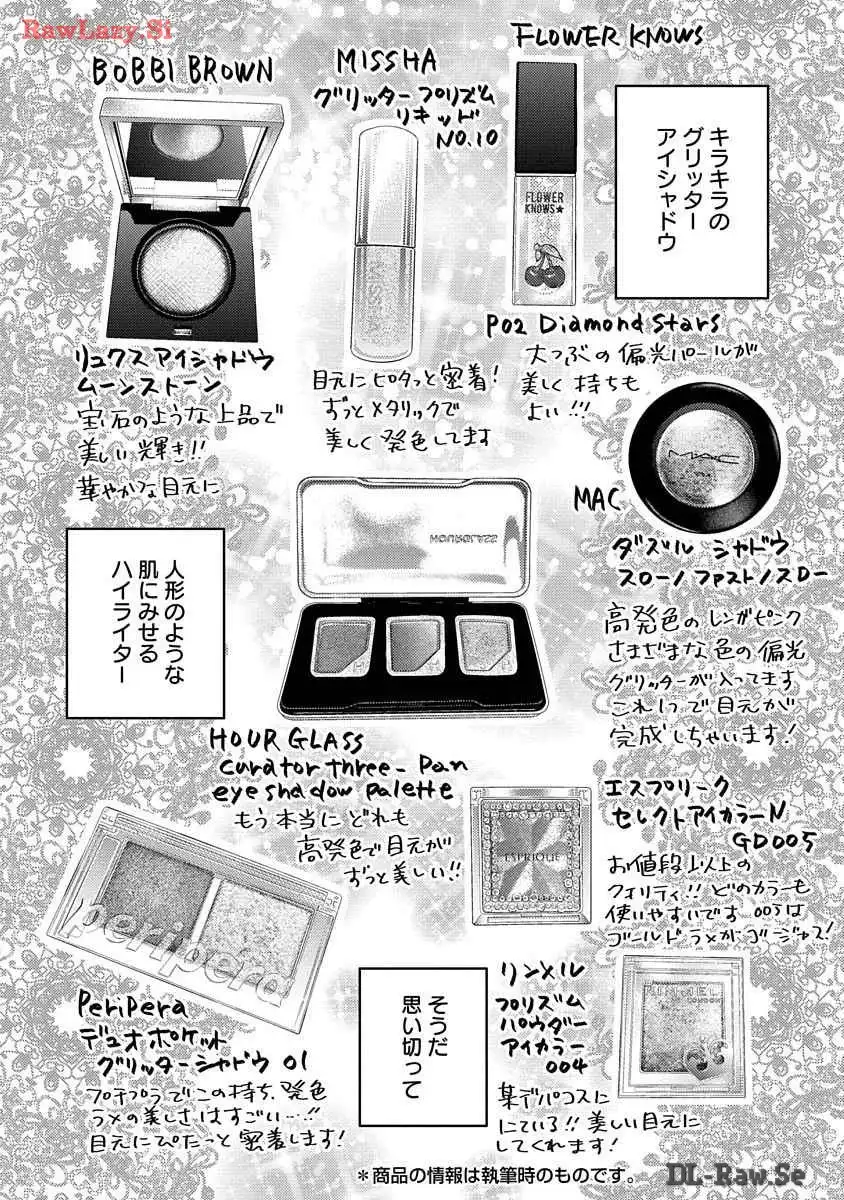 RawLazy.Si
FLOWER KNOWS
キラキラの
グリッター
アイシャドウ
FLOWER
KNOWS★
P02 Diamond Stars
大つぶの偏光パールが
美しく持ちも
よい!!!
MISSHA
グリッタープリズム
リキッド
NO.10
MISS
目元にピタっと密着!
ずっとメタリックで
美しく発色してます
BOBBI BROWN
リュクスアイシャドウ
ムーンストーン
宝石のような上品で
美しい輝き!!
華やかな目元に
MAC
MAC
ダズル シャドウ
スロー/ファスト/スロー
高発色のレンガピンク
さまざまな色の偏光
グリッターが入ってます
これ1つで目元が
完成しちゃいます!
人形のような
肌にみせる
ハイライター
HOURGLASS
HOUR GLASS
curator three-Pan
eyeshadow palette
もう本当にどれも
高発色で目元が
ずっと美しい!!
エスプリーク
セレクトアイカラーN
GD005
ESPRIQUE
お値段以上の
クォリティ!!どのカラーも
使いやすいです 005は
ゴールドラメがゴージャス!
peripera
PeriPera
デュオポケット
グリッターシャドウ 01
プチプラでこの持ち、発色
ラメの美しさはすごい…!!
目元にぴたーっと密着します!
そうだ
思い切って
リンメル
プリズム
パウダー
アイカラー
004
RIMMEL
LONDON
某デパコスに
にている!!美しい目元に
してくれます!
＊商品の情報は執筆時のものです。
DL-Raw.Se